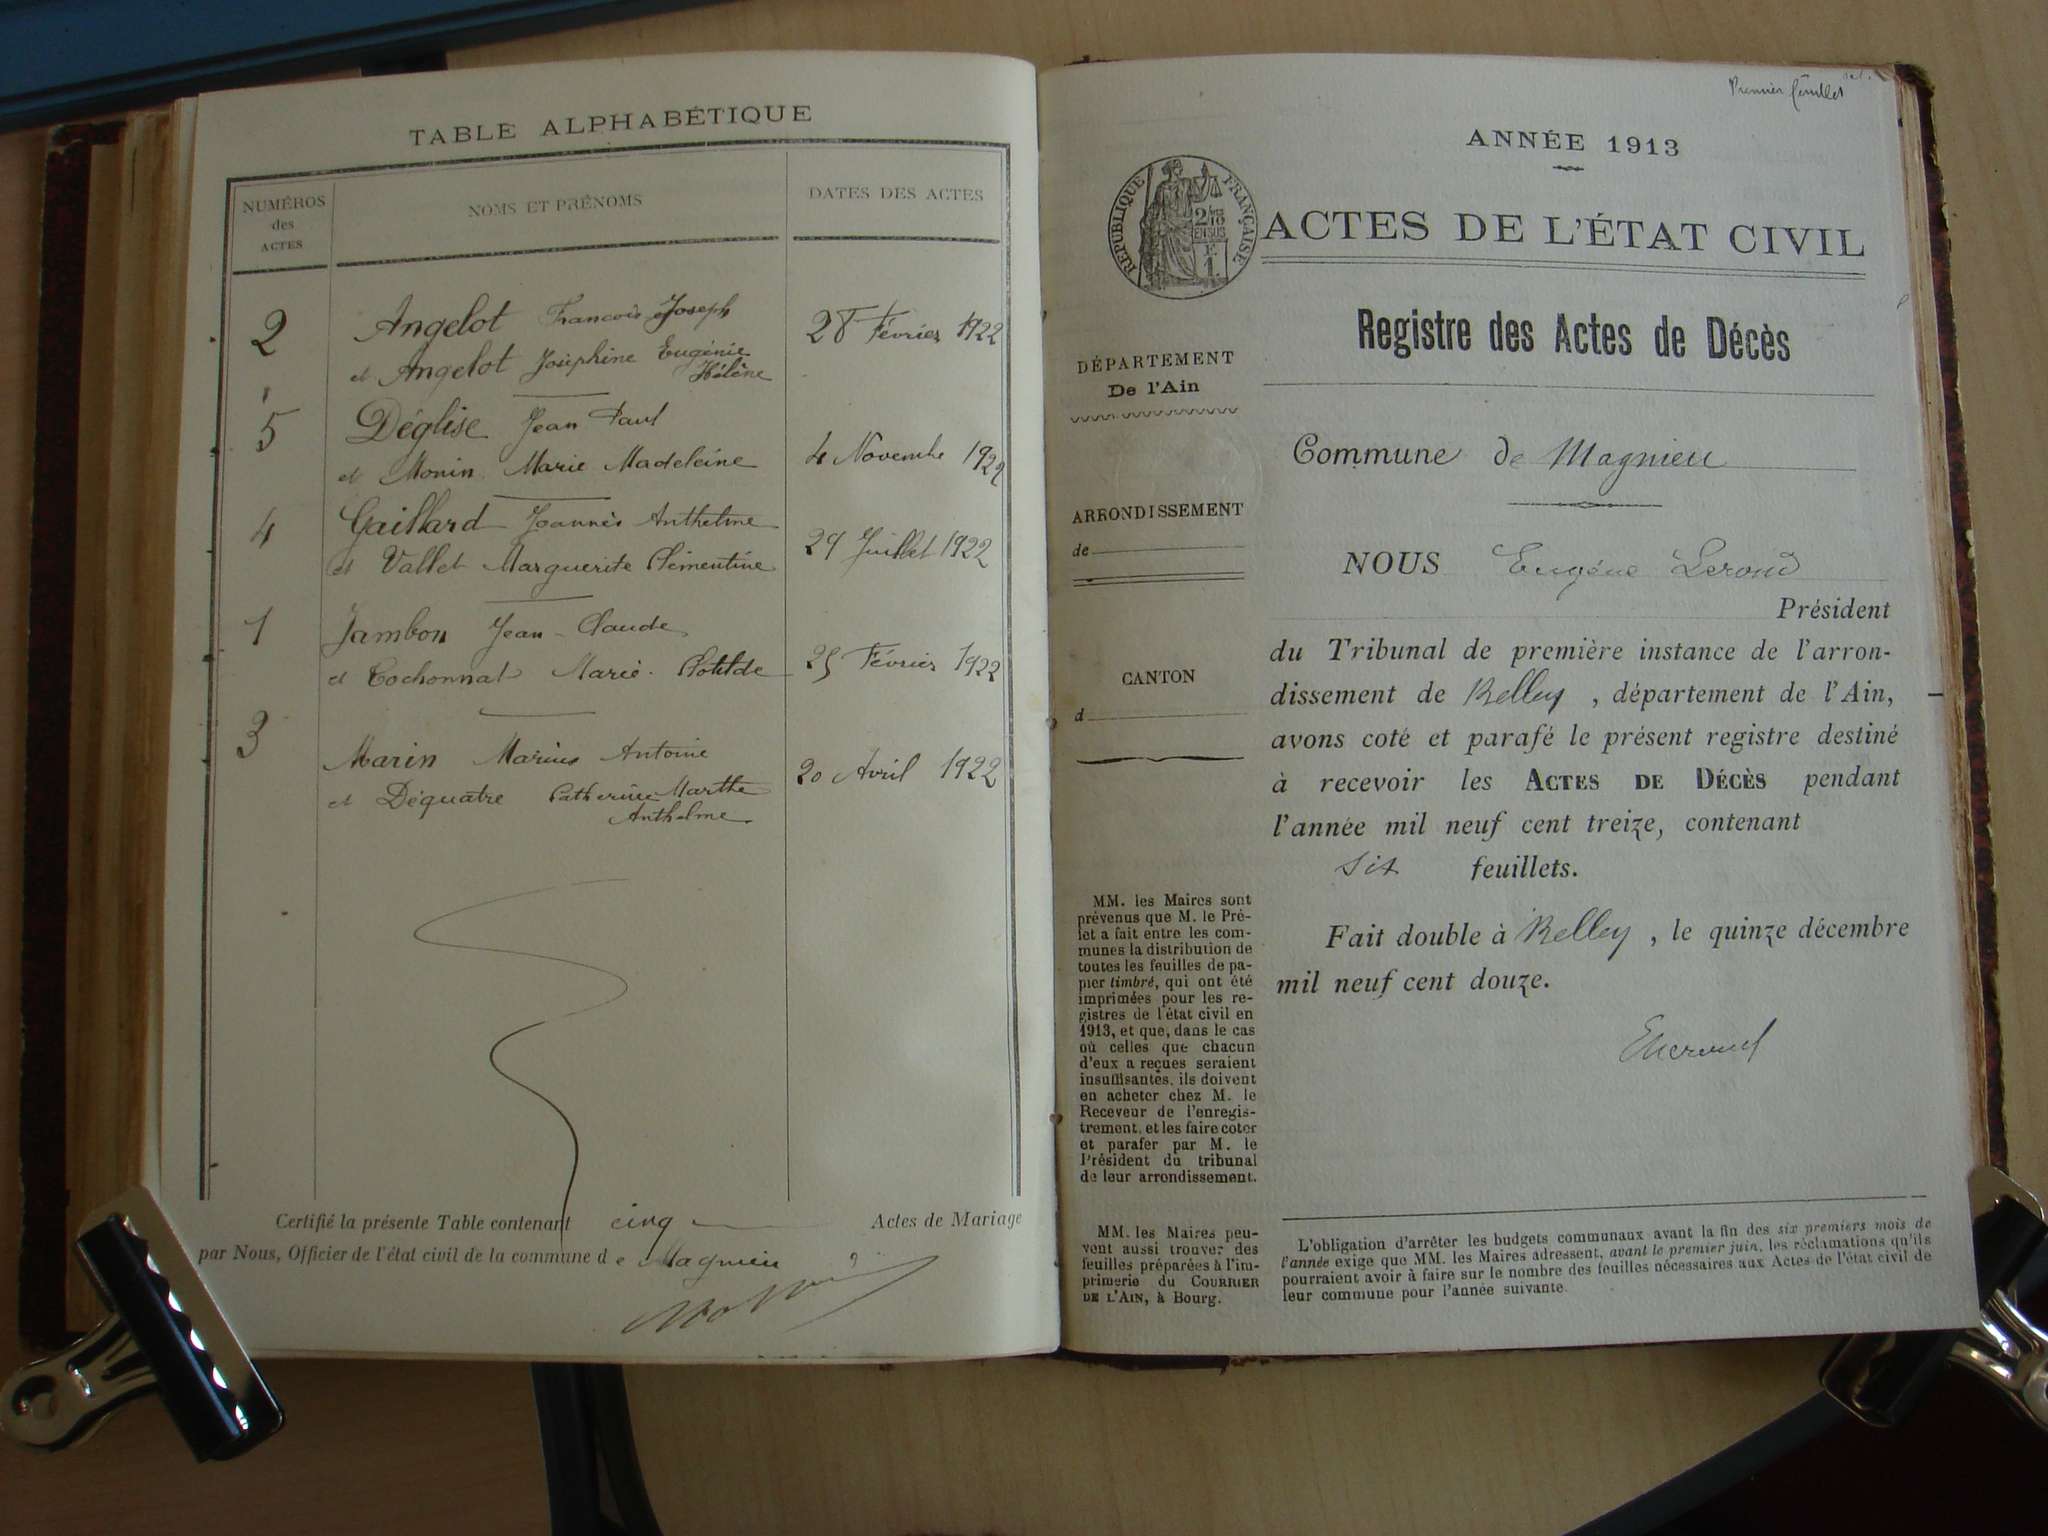 TABLE ALPHABÉTIQUE
NUMÉROS
des
ACTES
NOMS ET PRÉNOMS
DATES DES ACTES
2
Angelot François Joseph
et Angelot Josephine Eugénie
Hélène
28 Février 1922
5
Déglise Jean Paul
et Monin Marie Madeleine
4 Novembre 1922
4
Gaillard Joannès Anthelme
et Vallet Marguerite Clémentine
29 Juillet 1922
1
Jambon Jean-Claude
et Cochonnat Marie Clotilde
25 Février 1922
3
Marin Marius Antoine
et Déquatre Catherine Marthe
Anthelme
20 Avril 1922
Certifié la présente Table contenant cinq Actes de Mariage
par Nous, Officier de l'état civil de la commune de Magnieu
Premier feuillet
ANNÉE 1913
RÉPUBLIQUE FRANÇAISE
ACTES DE L'ÉTAT CIVIL
Registre des Actes de Décès
DÉPARTEMENT
De l'Ain
Commune de Magnieu
ARRONDISSEMENT
de
CANTON
d
NOUS Eugène Leroud
Président
du Tribunal de première instance de l'arron-
dissement de Belley, département de l'Ain,
avons coté et parafé le présent registre destiné
à recevoir les ACTES DE DÉCÈS pendant
l'année mil neuf cent treize, contenant
six feuillets.
Fait double à Belley, le quinze décembre
mil neuf cent douze.
MM. les Maires sont
prévenus que M. le Pré-
fet a fait entre les com-
munes la distribution de
toutes les feuilles de pa-
pier timbré, qui ont été
imprimées pour les re-
gistres de l'état civil en
1913, et que, dans le cas
où celles que chacun
d'eux a reçues seraient
insuffisantes, ils doivent
en acheter chez M. le
Receveur de l'enregis-
trement, et les faire coter
et parafer par M. le
Président du tribunal
de leur arrondissement.
MM. les Maires peu-
vent aussi trouver des
feuilles préparées à l'im-
primerie du COURRIER
DE L'AIN, à Bourg.
L'obligation d'arrêter les budgets communaux avant la fin des six premiers mois de
l'année exige que MM. les Maires adressent, avant le premier juin, les réclamations qu'ils
pourraient avoir à faire sur le nombre des feuilles nécessaires aux Actes de l'état civil de
leur commune pour l'année suivante.